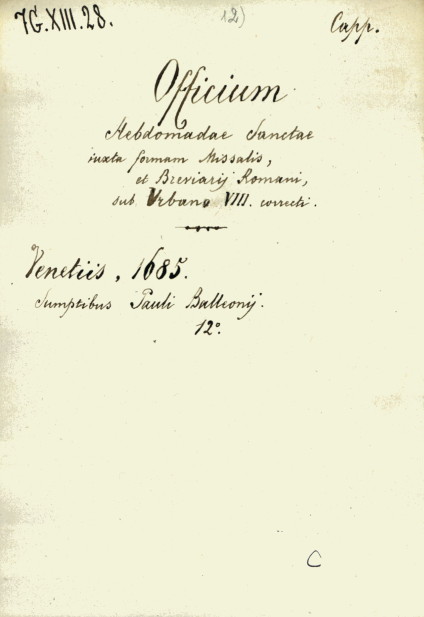 7G.XIII.28.
12)
Capp.
Officium
Hebdomadae Sanctae
iuxta formam Missalis,
et Breviarij Romani,
sub Urbano VIII. correcti.
Venetiis, 1685.
Sumptibus Pauli Balleonij.
12º.
C